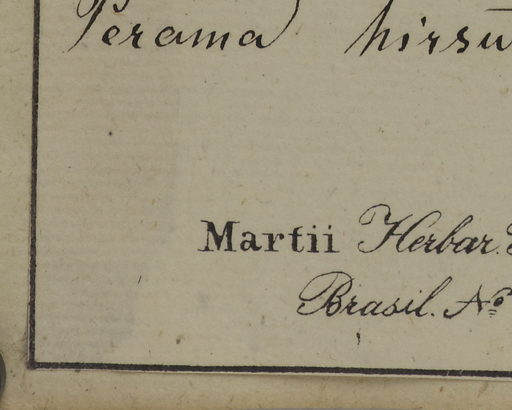 Perama hirsu
Martii Herbar.
Brasil. No